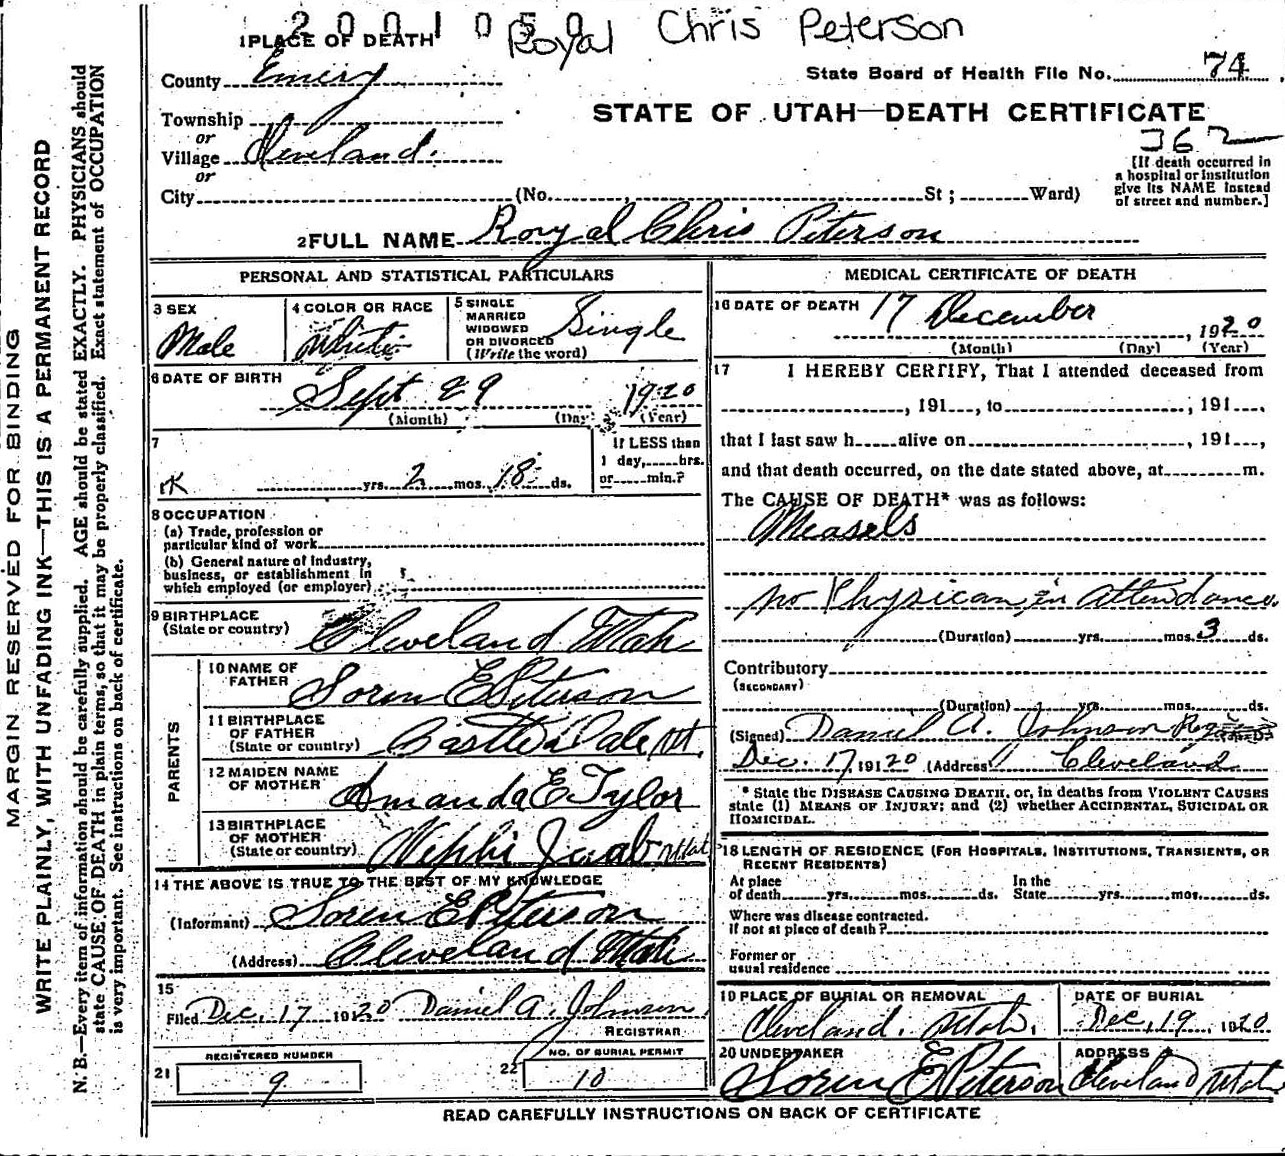 2001050
Royal Chris Peterson
1 PLACE OF DEATH
State Board of Health File No. 74
County Emery
STATE OF UTAH—DEATH CERTIFICATE
Township
or
Village Cleveland.
or
City (No. St; Ward)
362
[If death occurred in
a hospital or institution
give its NAME instead
of street and number.]
2 FULL NAME Royal Chris Peterson
PERSONAL AND STATISTICAL PARTICULARS
3 SEX
Male
4 COLOR OR RACE
White
5 SINGLE
MARRIED
WIDOWED
OR DIVORCED
(Write the word)
Single
6 DATE OF BIRTH
Sept 29 1920
(Month) (Day) (Year)
7
yrs. 2 mos. 18 ds.
If LESS than
1 day, hrs.
or min.?
8 OCCUPATION
(a) Trade, profession or
particular kind of work
(b) General nature of industry,
business, or establishment in
which employed (or employer)
9 BIRTHPLACE
(State or country) Cleveland Utah
PARENTS
10 NAME OF
FATHER Soren E Peterson
11 BIRTHPLACE
OF FATHER
(State or country) Castle Dale Ut.
12 MAIDEN NAME
OF MOTHER Amanda E Tylor
13 BIRTHPLACE
OF MOTHER
(State or country) Nephi Juab Utah
14 THE ABOVE IS TRUE TO THE BEST OF MY KNOWLEDGE
(Informant) Soren E Peterson
(Address) Cleveland Utah
15
Filed Dec. 17 19120 Daniel A. Johnson
REGISTRAR
REGISTERED NUMBER
21 9
NO. OF BURIAL PERMIT
22 10
MEDICAL CERTIFICATE OF DEATH
16 DATE OF DEATH 17 December
, 1920
(Month) (Day) (Year)
17 I HEREBY CERTIFY, That I attended deceased from
, 191 , to , 191 ,
that I last saw h alive on , 191 ,
and that death occurred, on the date stated above, at m.
The CAUSE OF DEATH* was as follows:
Measels
no Physican in attendance.
(Duration) yrs. mos. 3 ds.
Contributory
(SECONDARY)
(Duration) yrs. mos. ds.
(Signed) Daniel A. Johnson
Dec. 17, 19120 (Address) Cleveland
* State the DISEASE CAUSING DEATH, or, in deaths from VIOLENT CAUSES
state (1) MEANS OF INJURY; and (2) whether ACCIDENTAL, SUICIDAL OR
HOMICIDAL.
18 LENGTH OF RESIDENCE (FOR HOSPITALS, INSTITUTIONS, TRANSIENTS, OR
RECENT RESIDENTS)
At place
of death yrs. mos. ds.
In the
State yrs. mos. ds.
Where was disease contracted.
If not at place of death?
Former or
usual residence
19 PLACE OF BURIAL OR REMOVAL
Cleveland. Utah.
DATE OF BURIAL
Dec, 19, 1920
20 UNDERTAKER
Soren E Peterson
ADDRESS
Cleveland Utah
READ CAREFULLY INSTRUCTIONS ON BACK OF CERTIFICATE
MARGIN RESERVED FOR BINDING
WRITE PLAINLY, WITH UNFADING INK—THIS IS A PERMANENT RECORD
N. B.—Every item of information should be carefully supplied. AGE should be stated EXACTLY. PHYSICIANS should
state CAUSE OF DEATH in plain terms, so that it may be properly classified. Exact statement of OCCUPATION
is very important. See instructions on back of certificate.